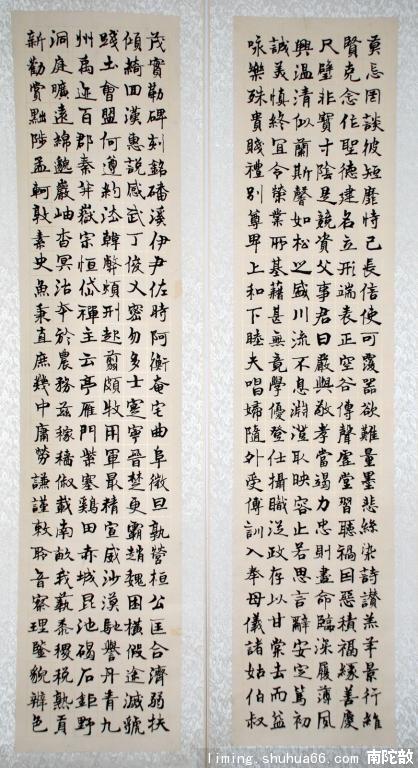 莫忘罔談彼短靡恃己長信使可覆器欲難量墨悲絲染詩讚羔羊景行維
賢克念作聖德建名立形端表正空谷傳聲虛堂習聽禍因惡積福緣善慶
尺璧非寶寸陰是競資父事君曰嚴與敬孝當竭力忠則盡命臨深履薄夙
興溫清似蘭斯馨如松之盛川流不息淵澄取映容止若思言辭安定篤初
誠美慎終宜令榮業所基藉甚無竟學優登仕攝職從政存以甘棠去而益
詠樂殊貴賤禮別尊卑上和下睦夫唱婦隨外受傅訓入奉母儀諸姑伯叔
茂實勒碑刻銘磻溪伊尹佐時阿衡奄宅曲阜微旦孰營桓公匡合濟弱扶
傾綺回漢惠說感武丁俊乂密勿多士寔寧晉楚更霸趙魏困橫假途滅虢
踐土會盟何遵約法韓弊煩刑起翦頗牧用軍最精宣威沙漠馳譽丹青九
州禹迹百郡秦并嶽宗恒岱禪主云亭雁門紫塞鷄田赤城昆池碣石鉅野
洞庭曠遠綿邈巖岫杳冥治本於農務茲稼穡俶載南畝我藝黍稷稅熟貢
新勸賞黜陟孟軻敦素史魚秉直庶幾中庸勞謙謹敕聆音察理鑒貌辨色
liming.shuhua66.com 南陀歆